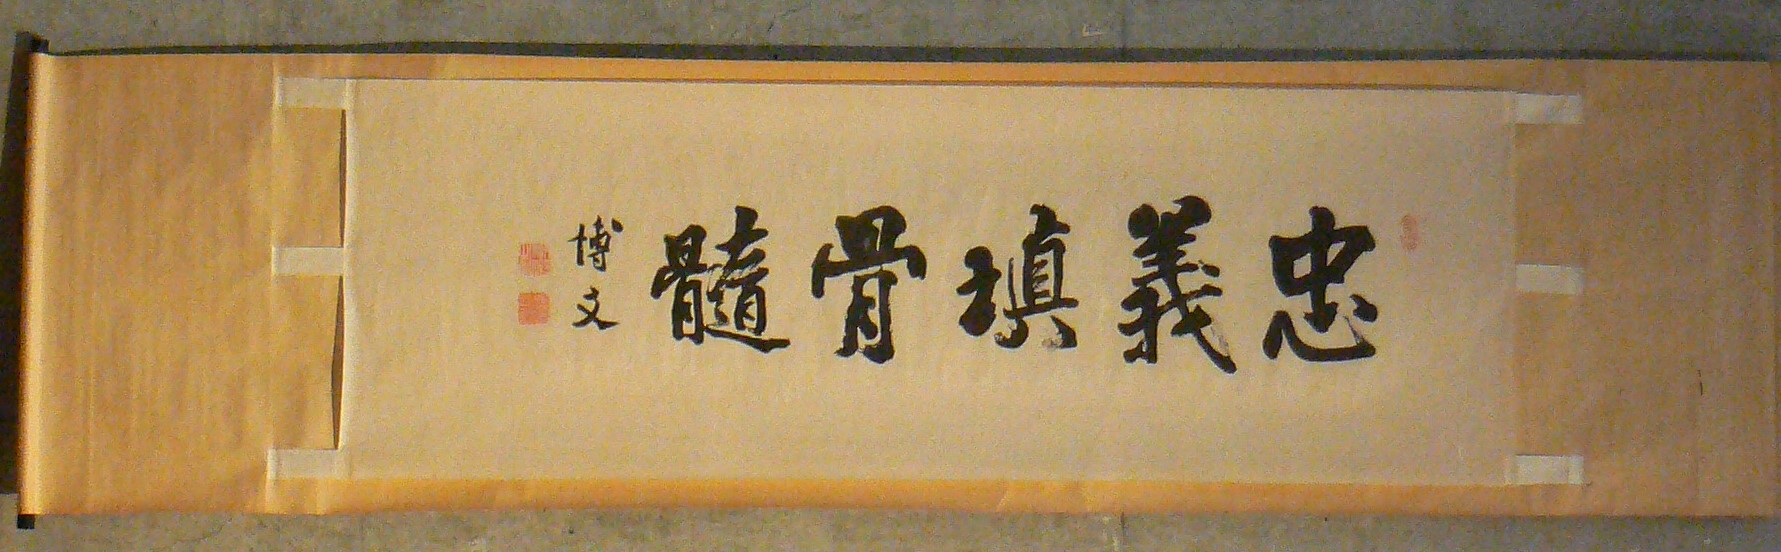 忠義填骨髓
博文